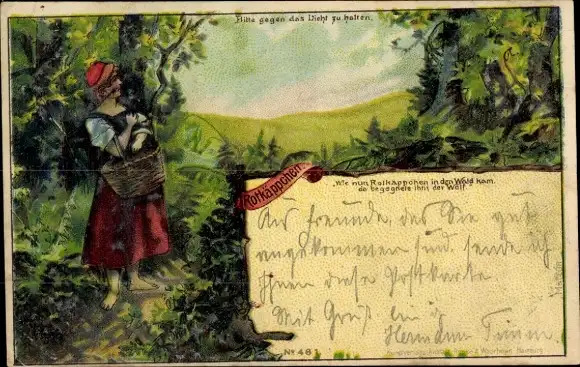 Bitte gegen das Licht zu halten.
Rotkäppchen
„Wie nun Rotkäppchen in den Wald kam,
da begegnete ihm der Wolf."
Aus Freunde, das Sie gut
angekommen sind, sende ich
Ihnen diese Postkarte.
Mit Gruß bin ich
Hermann Timm
No 48
Hamburg